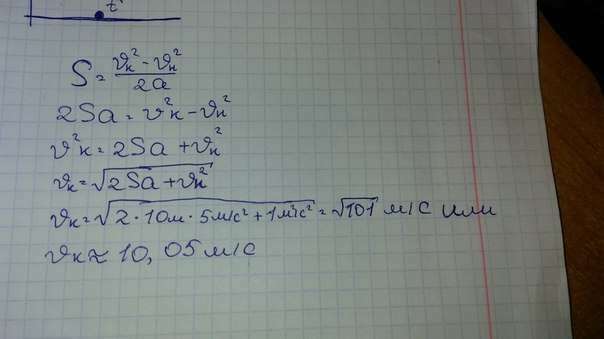 t
S = (v_к² - v_н²) / 2a
2Sa = v²к - v_н²
v²к = 2Sa + v_н²
v_к = √(2Sa + v_н²)
v_к = √(2·10м·5м/с² + 1м²/с²) = √101 м/с или
v_к ≈ 10,05 м/с